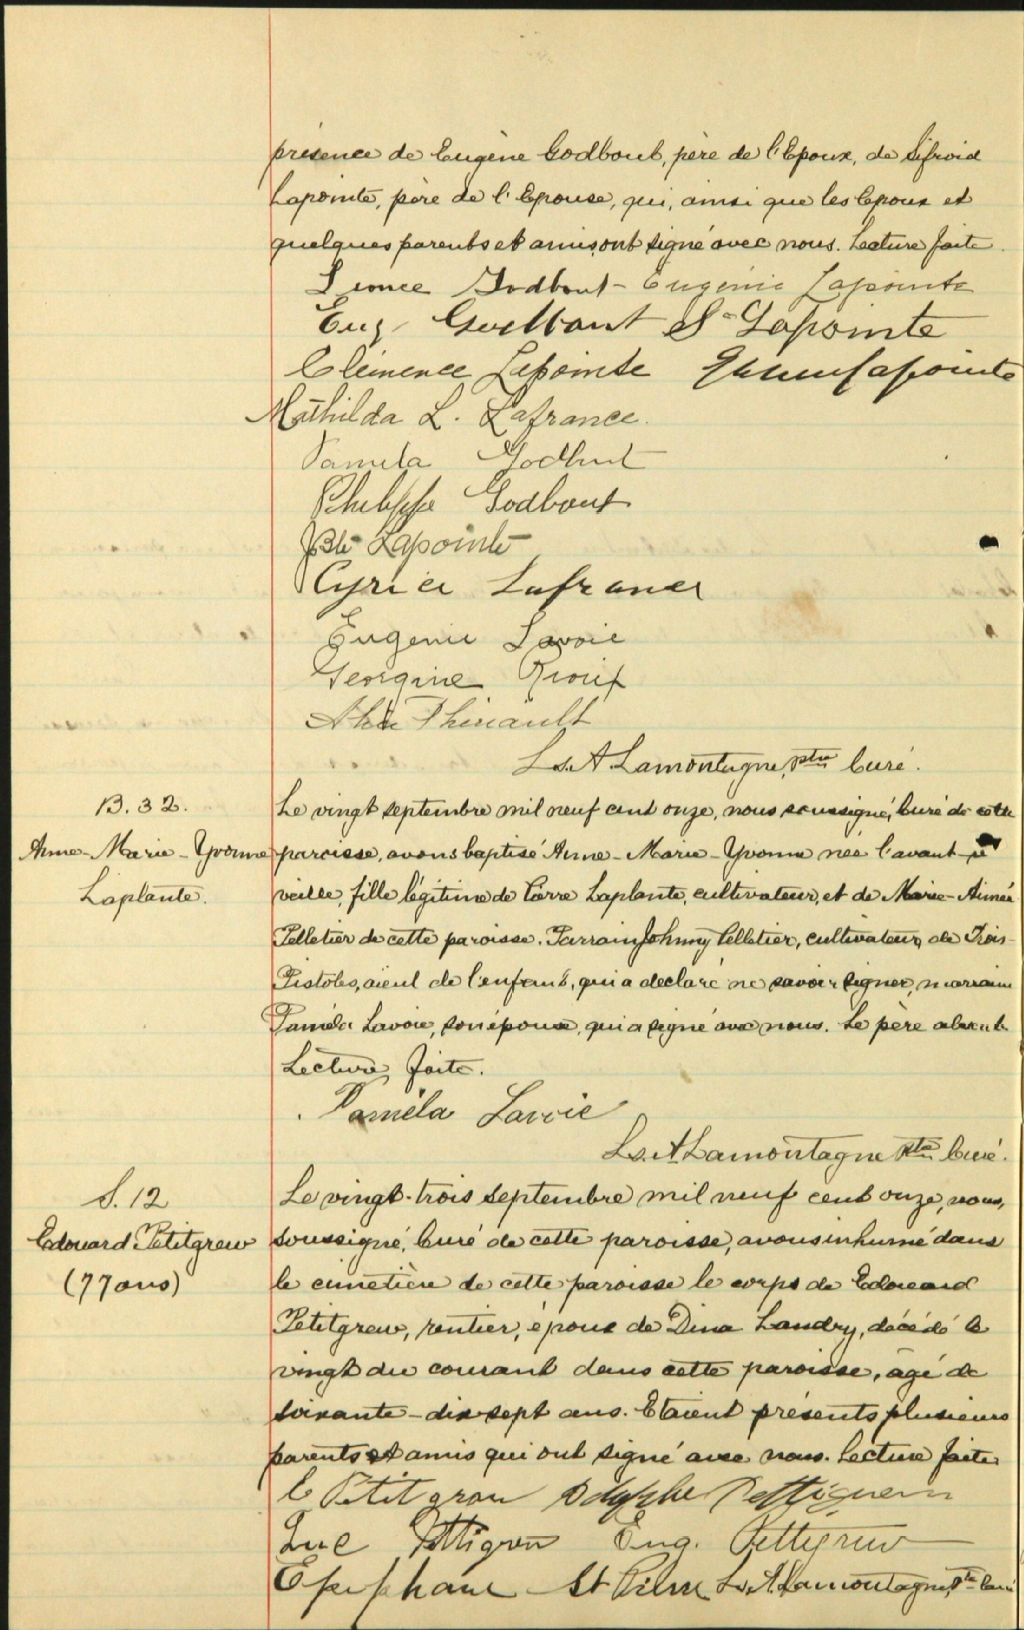 présence de Eugène Godbout, père de l'Epoux, de Sifroid
Lapointe, père de l'Epouse, qui, ainsi que les Epoux et
quelques parents et amis, ont signé avec nous. Lecture faite.
Godbout - Eugénie Lapointe
Eug. Godbout S. Lapointe
Clémence Lapointe Lapointe
Mathilda L. Lafrance.
Pamela Godbout
Philippe Godbout
JBte Lapointe
Cyrice Lafrance
Eugenie Lavoie
Georgine Rioux
Theriault
Ls. A Lamontagne, ptre Curé.
B. 32.
Anne-Marie-Yvonne
Laplante.
Le vingt septembre mil neuf cent onze, nous soussigné, Curé de cette
paroisse, avons baptisé Anne-Marie-Yvonne née l'avant-
veille, fille légitime de Pierre Laplante, cultivateur, et de Marie-Aimée
Pelletier de cette paroisse. Parrain Johnny Pelletier, cultivateur, de Trois-
Pistoles, aieul de l'enfant, qui a déclaré ne savoir signer, marraine
Paméla Lavoie, son épouse, qui a signé avec nous. Le père absent.
Lecture faite.
Paméla Lavoie
Ls. A Lamontagne ptre Curé.
S. 12
Edouard Petitgrew
(77 ans)
Le vingt-trois septembre mil neuf cent onze, nous,
soussigné, Curé de cette paroisse, avons inhumé dans
le cimetière de cette paroisse le corps de Edouard
Petitgrew, rentier, époux de Dina Landry, décédé le
vingt du courant dans cette paroisse, âgé de
soixante-dix sept ans. Etaient présents plusieurs
parents et amis qui ont signé avec nous. Lecture faite
E Petitgrou Adolphe Pettigrew
Luc Pettigrew Eug. Pettegrew
Epiphane St Pierre Ls. A. Lamontagne, Ptre Curé